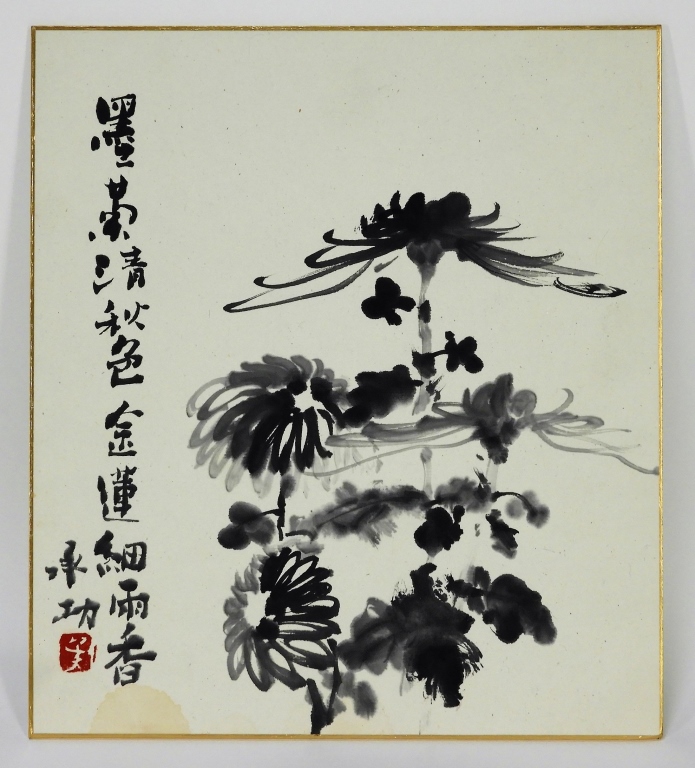 墨菊清秋色金蓮細雨香
承功